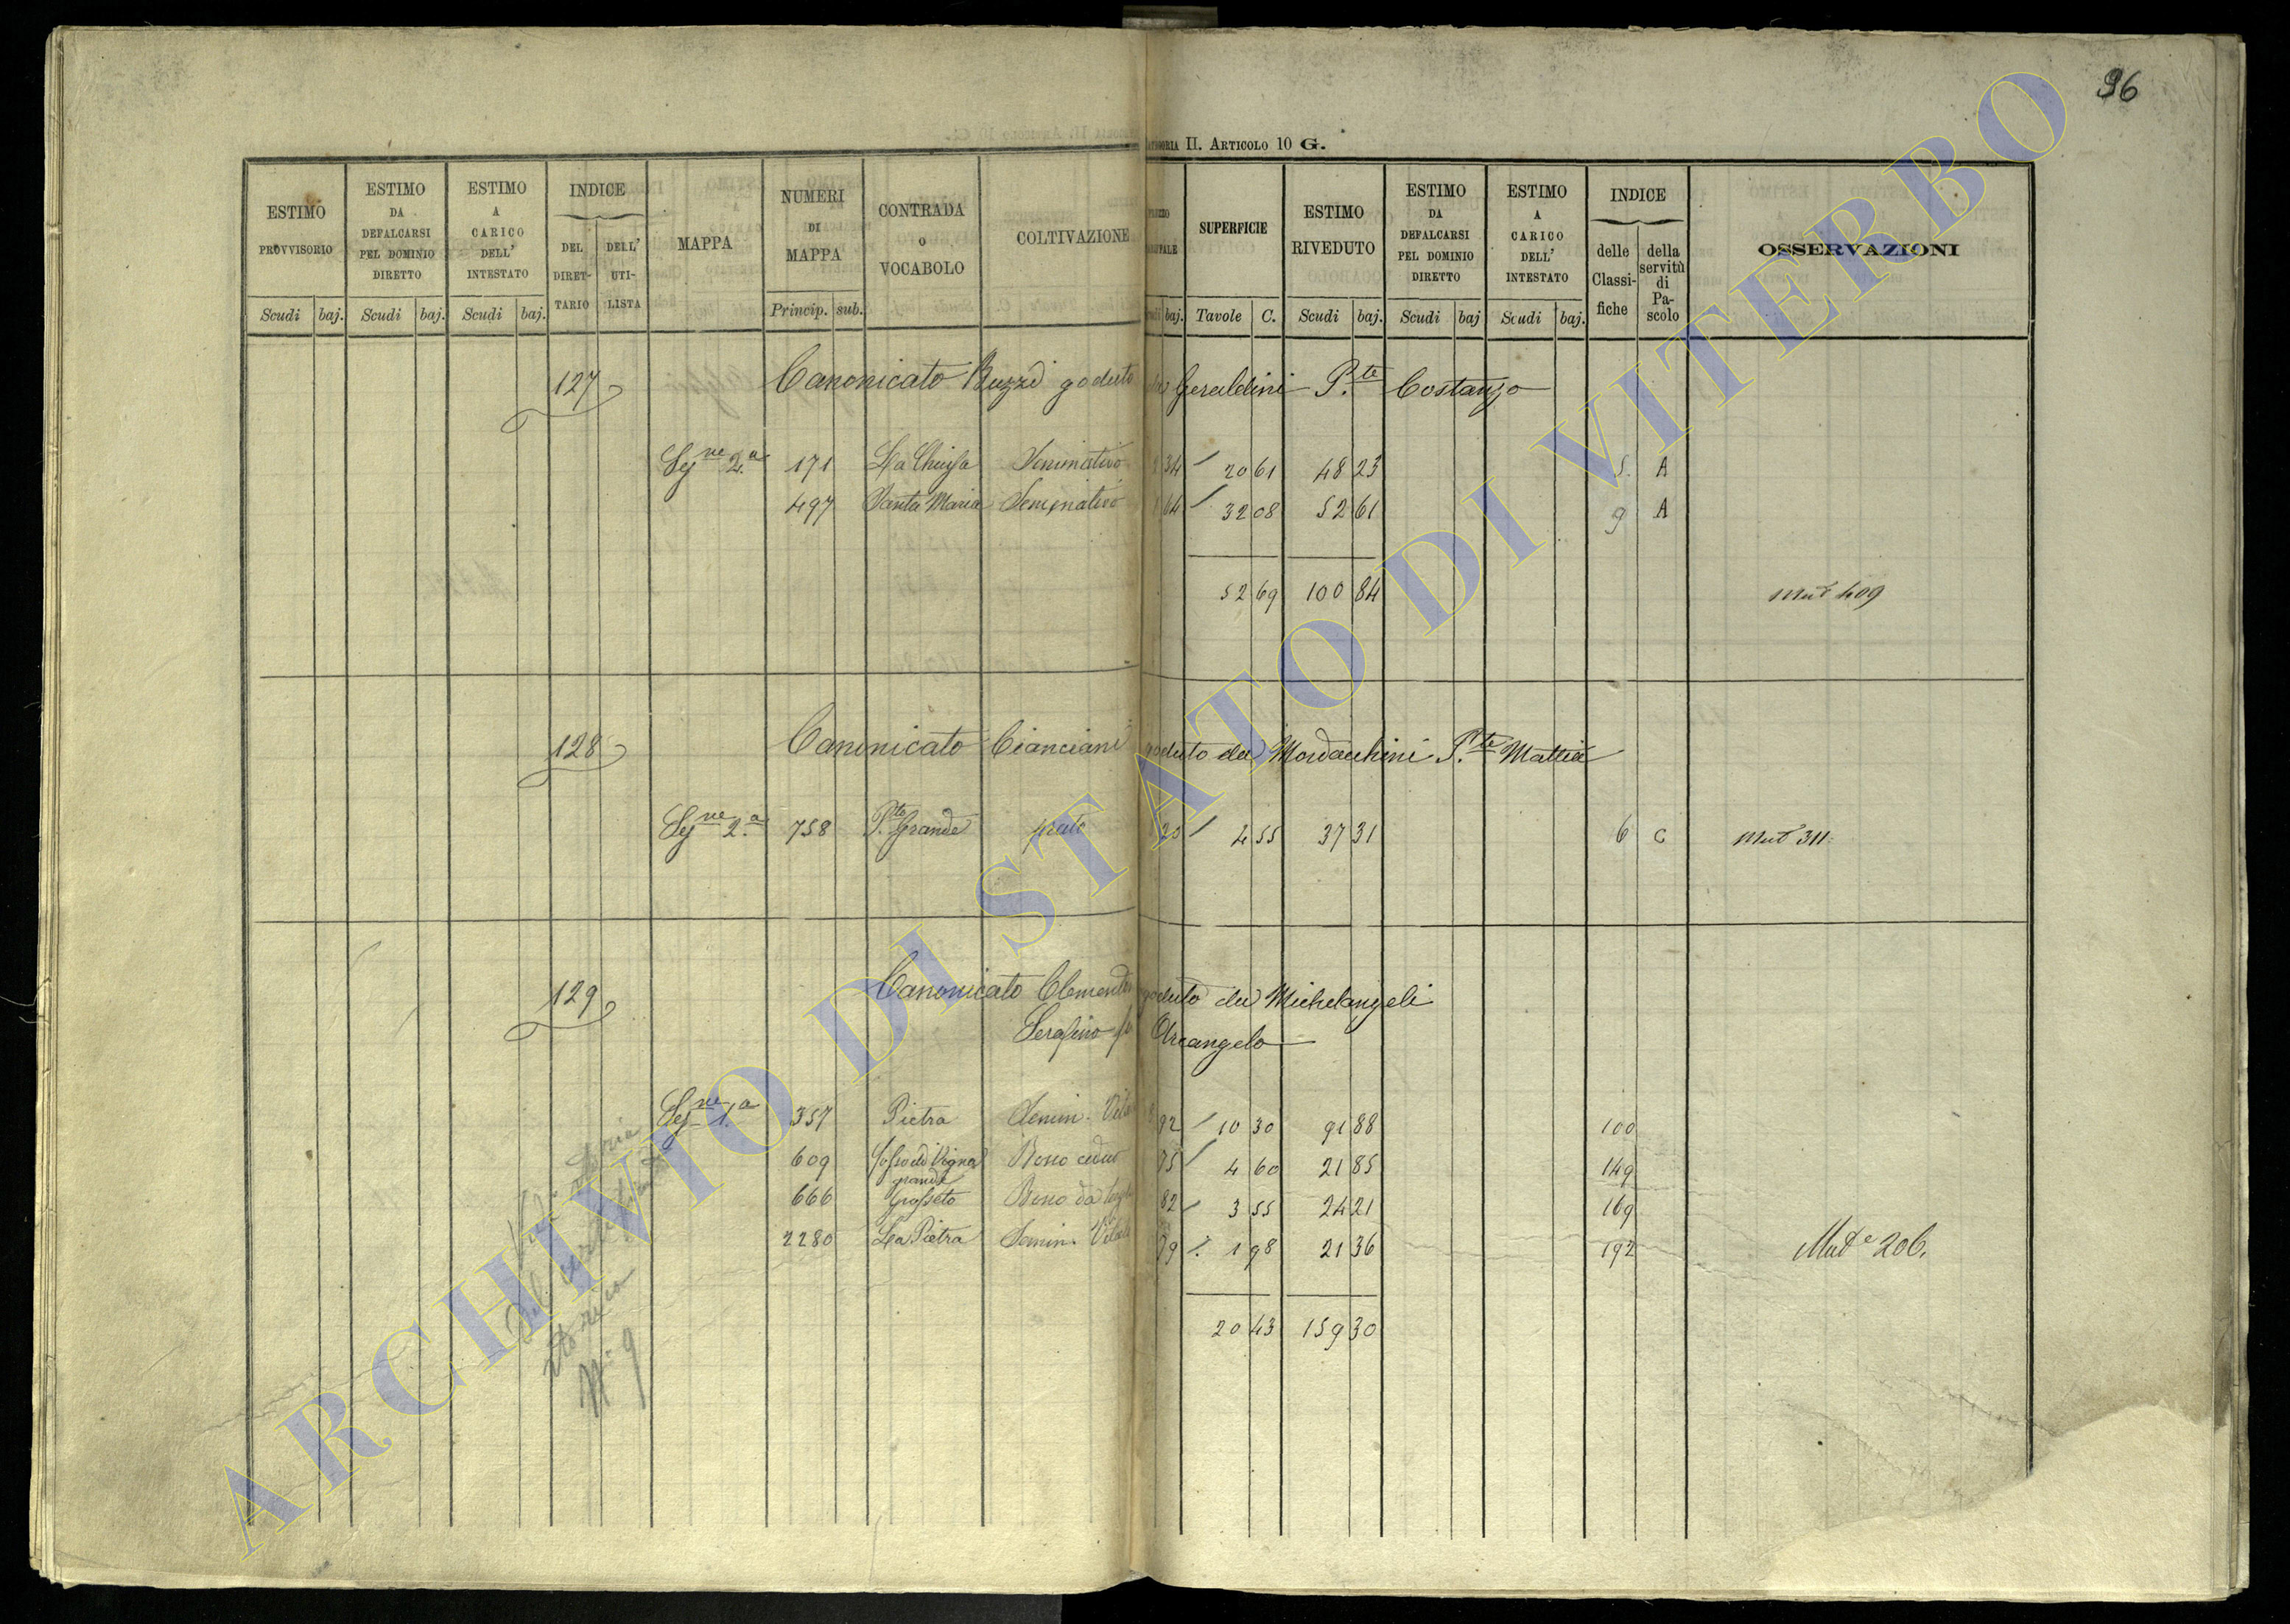 96
CATEGORIA II. ARTICOLO 10 G.
ESTIMO PROVVISORIO
ESTIMO DA DEFALCARSI PEL DOMINIO DIRETTO
ESTIMO A CARICO DELL' INTESTATO
INDICE
DEL DIRETTARIO
DELL' UTILISTA
MAPPA
NUMERI DI MAPPA
CONTRADA O VOCABOLO
COLTIVAZIONE
SUPERFICIE
ESTIMO RIVEDUTO
ESTIMO DA DEFALCARSI PEL DOMINIO DIRETTO
ESTIMO A CARICO DELL' INTESTATO
INDICE
delle Classifiche
della servitù di Pascolo
OSSERVAZIONI
Scudi baj. Scudi baj. Scudi baj. Princip. sub. baj. Tavole C. Scudi baj. Scudi baj Scudi baj.
127 Canonicato Buzzi goduto da Geraldini P.te Costanzo
Sez.ne 2.a 171 La Chiusa Seminativo 34 20 61 48 23 5. A
497 Santa Maria Seminativo 64 32 08 52 61 9 A
52 69 100 84 Mut.e 409
128 Canonicato Cianciani goduto da Mordacchini P.te Mattia
Sez.ne 2.a 758 P.te Grande prato 20 4 55 37 31 6 C Mut.e 311
129 Canonicato Clementini goduto da Michelangeli
Serafino fu Arcangelo
Sez.ne 1.a 357 Pietra Semin. Vitato 92 10 30 91 88 100
609 Fosso di Vigna grande Bosco ceduo 75 4 60 21 85 149
666 Grosseto Bosco da 82 3 55 24 21 169
2280 La Pietra Semin. Vitato 79 1 98 21 36 192 Mut.e 206.
20 43 159 30
N.o 9
ARCHIVIO DI STATO DI VITERBO